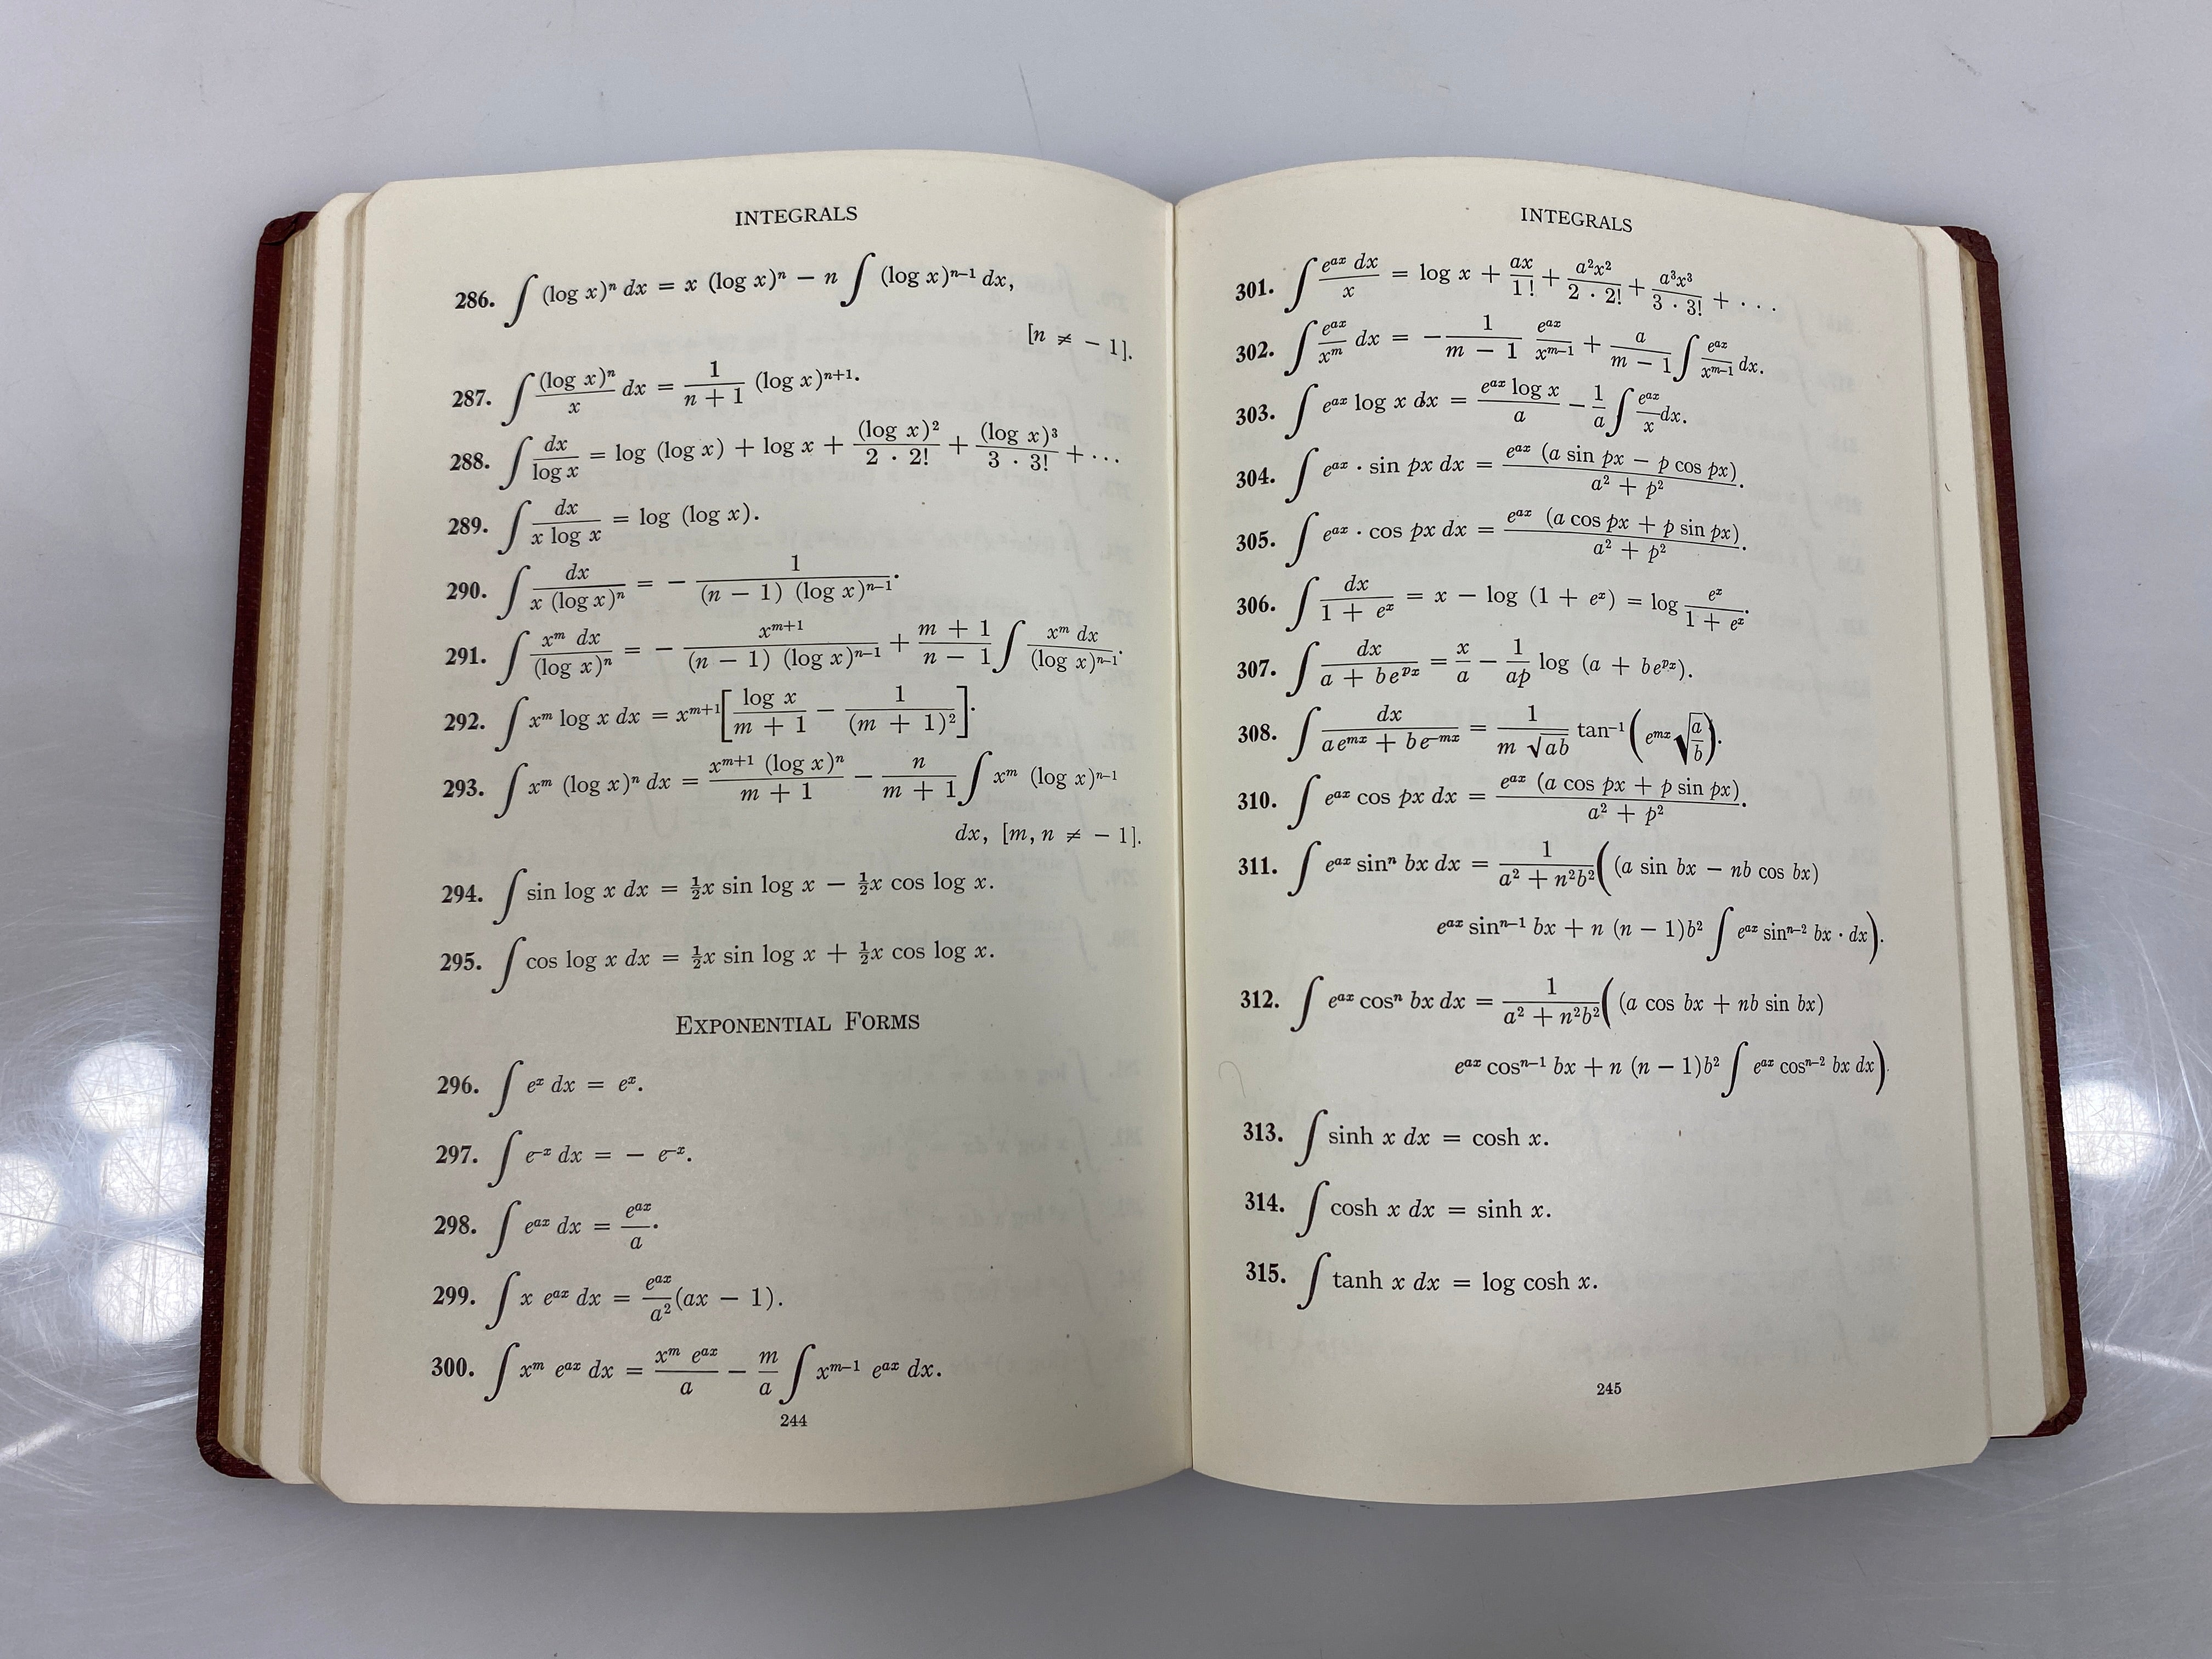 INTEGRALS
286. ∫ (log x)ⁿ dx = x (log x)ⁿ − n ∫ (log x)ⁿ⁻¹ dx,
[n ≠ − 1].
287. ∫ (log x)ⁿ/x dx = 1/(n + 1) (log x)ⁿ⁺¹.
288. ∫ dx/(log x) = log (log x) + log x + (log x)²/(2 · 2!) + (log x)³/(3 · 3!) + · · ·
289. ∫ dx/(x log x) = log (log x).
290. ∫ dx/(x (log x)ⁿ) = − 1/((n − 1) (log x)ⁿ⁻¹).
291. ∫ xᵐ dx/(log x)ⁿ = − xᵐ⁺¹/((n − 1) (log x)ⁿ⁻¹) + (m + 1)/(n − 1) ∫ xᵐ dx/(log x)ⁿ⁻¹.
292. ∫ xᵐ log x dx = xᵐ⁺¹ [log x/(m + 1) − 1/(m + 1)²].
293. ∫ xᵐ (log x)ⁿ dx = xᵐ⁺¹ (log x)ⁿ/(m + 1) − n/(m + 1) ∫ xᵐ (log x)ⁿ⁻¹
dx, [m, n ≠ − 1].
294. ∫ sin log x dx = ½x sin log x − ½x cos log x.
295. ∫ cos log x dx = ½x sin log x + ½x cos log x.
EXPONENTIAL FORMS
296. ∫ eˣ dx = eˣ.
297. ∫ e⁻ˣ dx = − e⁻ˣ.
298. ∫ eᵃˣ dx = eᵃˣ/a.
299. ∫ x eᵃˣ dx = eᵃˣ/a² (ax − 1).
300. ∫ xᵐ eᵃˣ dx = xᵐ eᵃˣ/a − m/a ∫ xᵐ⁻¹ eᵃˣ dx.
244
INTEGRALS
301. ∫ eᵃˣ dx/x = log x + ax/1! + a²x²/(2 · 2!) + a³x³/(3 · 3!) + · · ·
302. ∫ eᵃˣ/xᵐ dx = − 1/(m − 1) eᵃˣ/xᵐ⁻¹ + a/(m − 1) ∫ eᵃˣ/xᵐ⁻¹ dx.
303. ∫ eᵃˣ log x dx = eᵃˣ log x/a − 1/a ∫ eᵃˣ/x dx.
304. ∫ eᵃˣ · sin px dx = eᵃˣ (a sin px − p cos px)/(a² + p²).
305. ∫ eᵃˣ · cos px dx = eᵃˣ (a cos px + p sin px)/(a² + p²).
306. ∫ dx/(1 + eˣ) = x − log (1 + eˣ) = log eˣ/(1 + eˣ).
307. ∫ dx/(a + beᵖˣ) = x/a − 1/(ap) log (a + beᵖˣ).
308. ∫ dx/(aeᵐˣ + be⁻ᵐˣ) = 1/(m √ab) tan⁻¹ (eᵐˣ √(a/b)).
310. ∫ eᵃˣ cos px dx = eᵃˣ (a cos px + p sin px)/(a² + p²).
311. ∫ eᵃˣ sinⁿ bx dx = 1/(a² + n²b²) ( (a sin bx − nb cos bx)
eᵃˣ sinⁿ⁻¹ bx + n (n − 1)b² ∫ eᵃˣ sinⁿ⁻² bx · dx ).
312. ∫ eᵃˣ cosⁿ bx dx = 1/(a² + n²b²) ( (a cos bx + nb sin bx)
eᵃˣ cosⁿ⁻¹ bx + n (n − 1)b² ∫ eᵃˣ cosⁿ⁻² bx dx ).
313. ∫ sinh x dx = cosh x.
314. ∫ cosh x dx = sinh x.
315. ∫ tanh x dx = log cosh x.
245